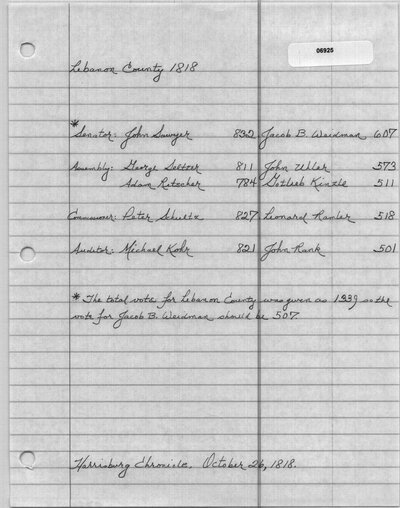 06925
Lebanon County 1818
*
Senator: John Sawyer 832 Jacob B. Weidman 607
Assembly: George Seltzer 811 John Uhler 573
Adam Ritscher 784 Gotleib Kinzle 511
Commissioner: Peter Shuetz 827 Leonard Ramler 518
Auditor: Michael Kohr 821 John Rank 501
* The total vote for Lebanon County was given as 1339 so the
vote for Jacob B. Weidman should be 507.
Harrisburg Chronicle. October 26, 1818.